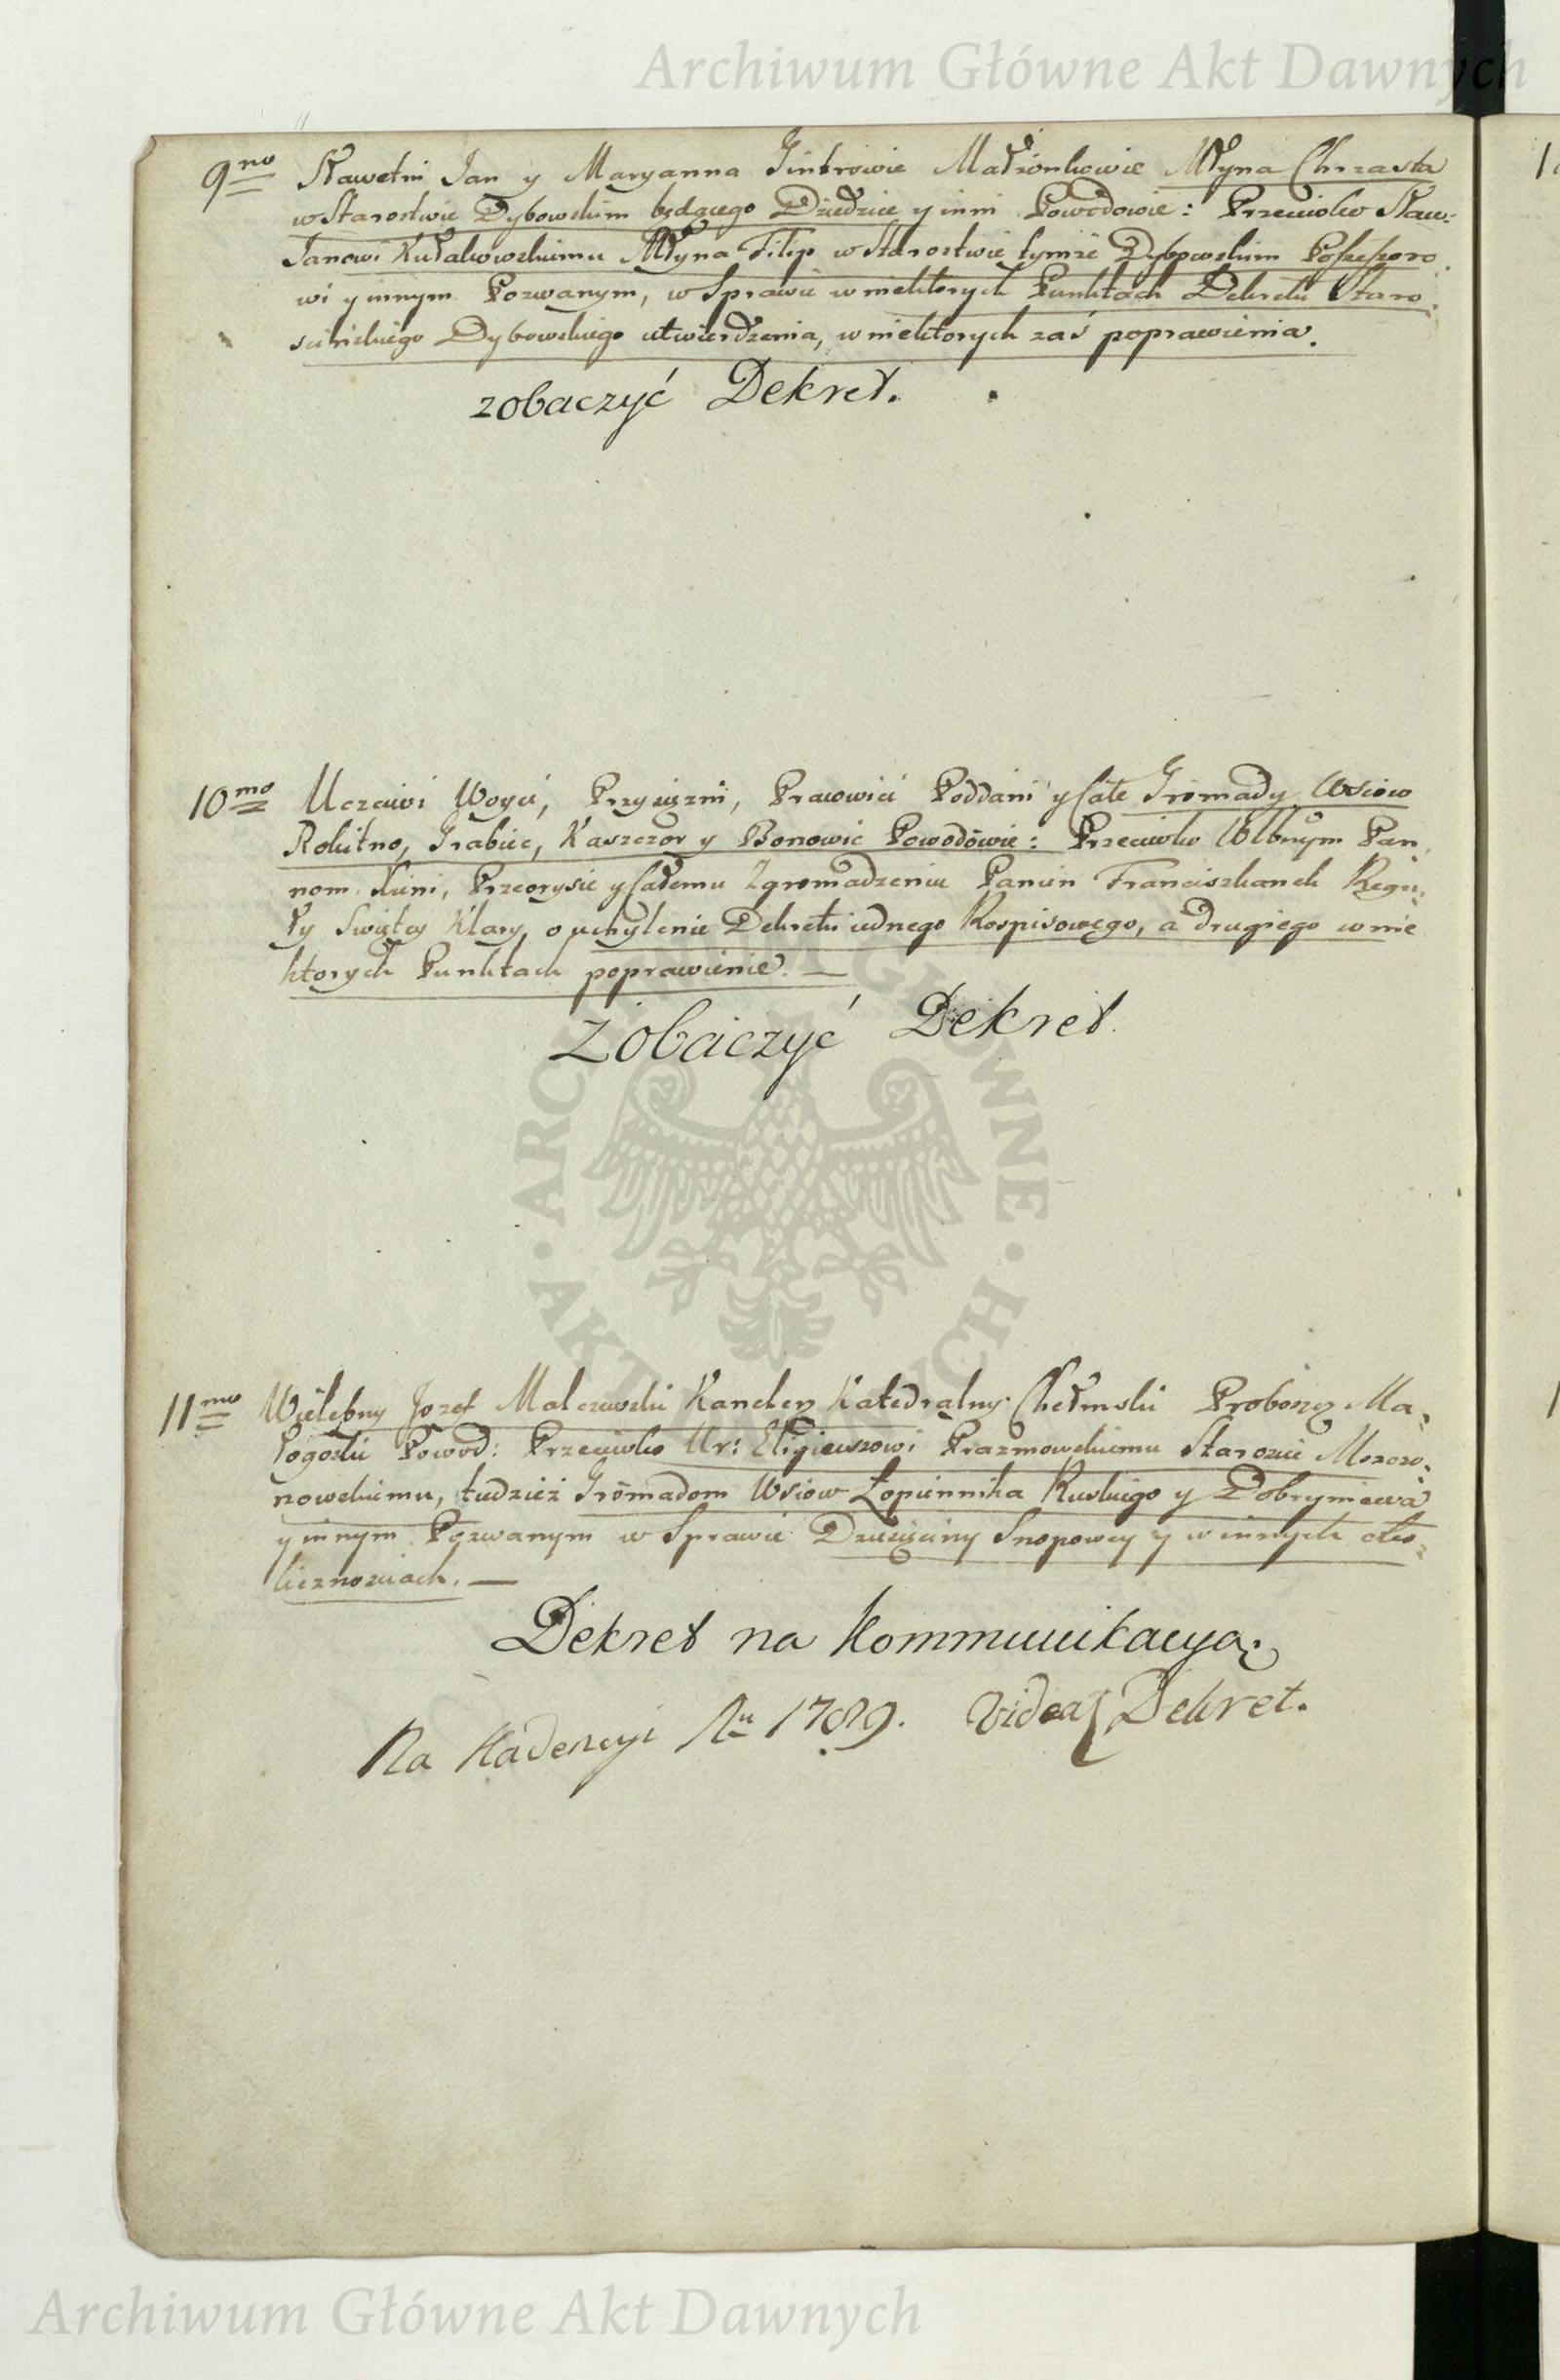 Archiwum Główne Akt Dawnych
9no Sławetni Jan y Maryanna Gintrowie Małżonkowie Młyna Chrzasta
w Starostwie Dybowskim będącego Dziedzice y inni Powodowie: Przeciwko Sław:
Janowi Kułakowskiemu Młyna Filip w Starostwie tymże Dybowskim Possessoro
wi y innym Pozwanym, w Sprawie w niektorych Punktach Dekretu Staro
scińskiego Dybowskiego utwierdzenia, w niektorych zaś poprawienia.
zobaczyć Dekret.
10mo Uczciwi Woyci, Przysiężni, Pracowici Poddani y Całe Gromady Wsiow
Rokitno, Grabiec, Kaszczor y Bonowic Powodowie: Przeciwko Wlbnym Pan
nom Xieni, Przeorysie y Całemu Zgromadzeniu Panien Franciszkanek Regu
ły Swiętey Klary, o uchylenie Dekretu iednego Rospisowego, a drugiego w nie
ktorych Punktach poprawienie. —
Zobaczyć Dekret
ARCHIWUM GŁÓWNE · AKT DAWNYCH ·
11mo Wielebny Jozef Malczewski Kanclerz Katedralny Chełmski Proboszcz Ma
łogoski Powod: Przeciwko Ur: Eligieuszowi Prazmowskiemu Staroscie Mszczo
nowskiemu, tudzież Gromadom Wsiow Łopiennika Ruskiego y Dobryniewa
y innym Pozwanym w Sprawie Dziesięciny Snopowey y w innych oko
licznosciach. —
Dekret na Kommunikacyą.
Na Kadencyi Ru 1789. Videat Dekret.
Archiwum Główne Akt Dawnych